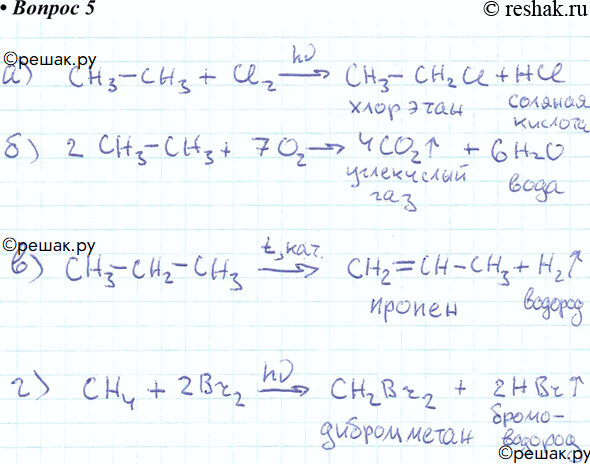 • Вопрос 5
© reshak.ru
©решак.ру
а) CH3–CH3 + Cl2 hν→ CH3–CH2Cl + HCl
хлорэтан соляная кислота
б) 2 CH3–CH3 + 7O2 → 4CO2↑ + 6H2O
углекислый газ вода
©решак.ру
в) CH3–CH2–CH3 t, кат.→ CH2=CH–CH3 + H2↑
пропен водород
г) CH4 + 2Br2 hν→ CH2Br2 + 2HBr↑
дибромметан бромо-
водород
©решак.ру